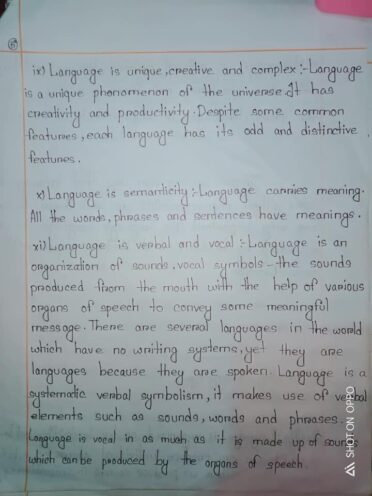 ix) Language is unique, creative and complex :- Language
is a unique phenomenon of the universe. It has
creativity and productivity. Despite some common
features, each language has its odd and distinctive
features.
x) Language is semanticity :- Language carries meaning.
All the words, phrases and sentences have meanings.
xi) Language is verbal and vocal :- Language is an
organization of sounds, vocal symbols - the sounds
produced from the mouth with the help of various
organs of speech to convey some meaningful
message. There are several languages in the world
which have no writing systems, yet they are
languages because they are spoken. Language is a
systematic verbal symbolism, it makes use of verbal
elements such as sounds, words and phrases.
Language is vocal in as much as it is made up of sound
which can be produced by the organs of speech.
SHOT ON OPPO